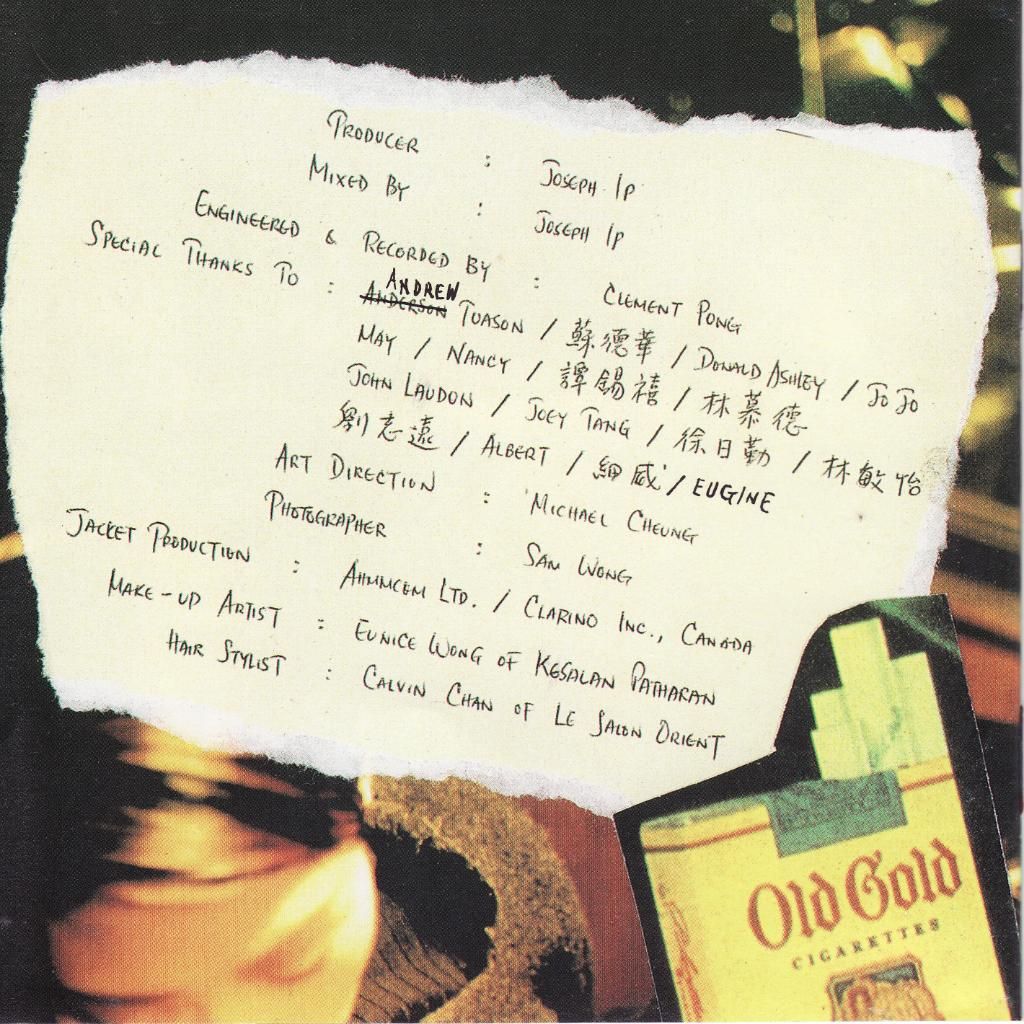 PRODUCER : JOSEPH IP
MIXED BY : JOSEPH IP
ENGINEERED & RECORDED BY : CLEMENT PONG
SPECIAL THANKS TO : ANDERSON ANDREW TUASON / 蘇德華 / DONALD ASHLEY / JO JO
MAY / NANCY / 譚錫禧 / 林慕德
JOHN LAUDON / JOEY TANG / 徐日勤 / 林敏怡
劉志遠 / ALBERT / 細威 / EUGINE
ART DIRECTION : MICHAEL CHEUNG
PHOTOGRAPHER : SAM WONG
JACKET PRODUCTION : AHMMCEM LTD. / CLARINO INC., CANADA
MAKE-UP ARTIST : EUNICE WONG OF KESALAN PATHARAN
HAIR STYLIST : CALVIN CHAN OF LE SALON ORIENT
Old Gold
CIGARETTES